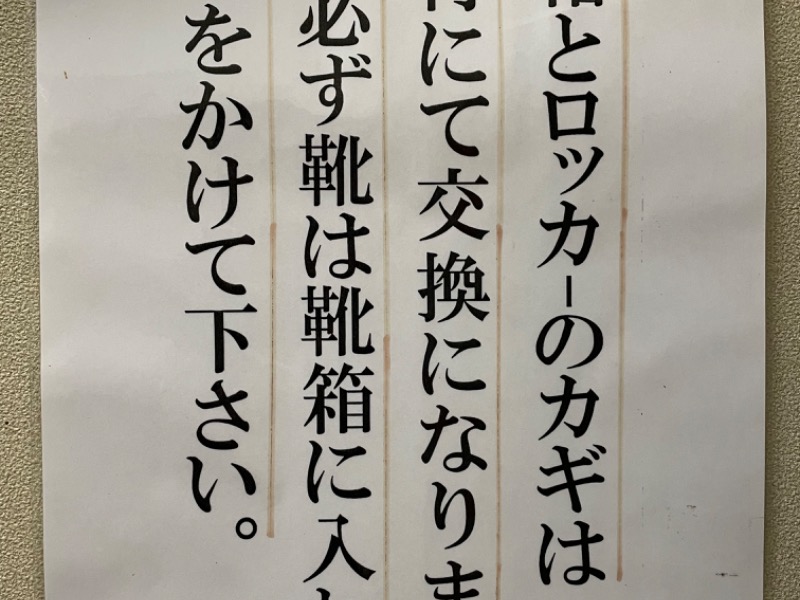 とロッカーのカギは
にて交換になりま
必ず靴は靴箱に入
をかけて下さい。